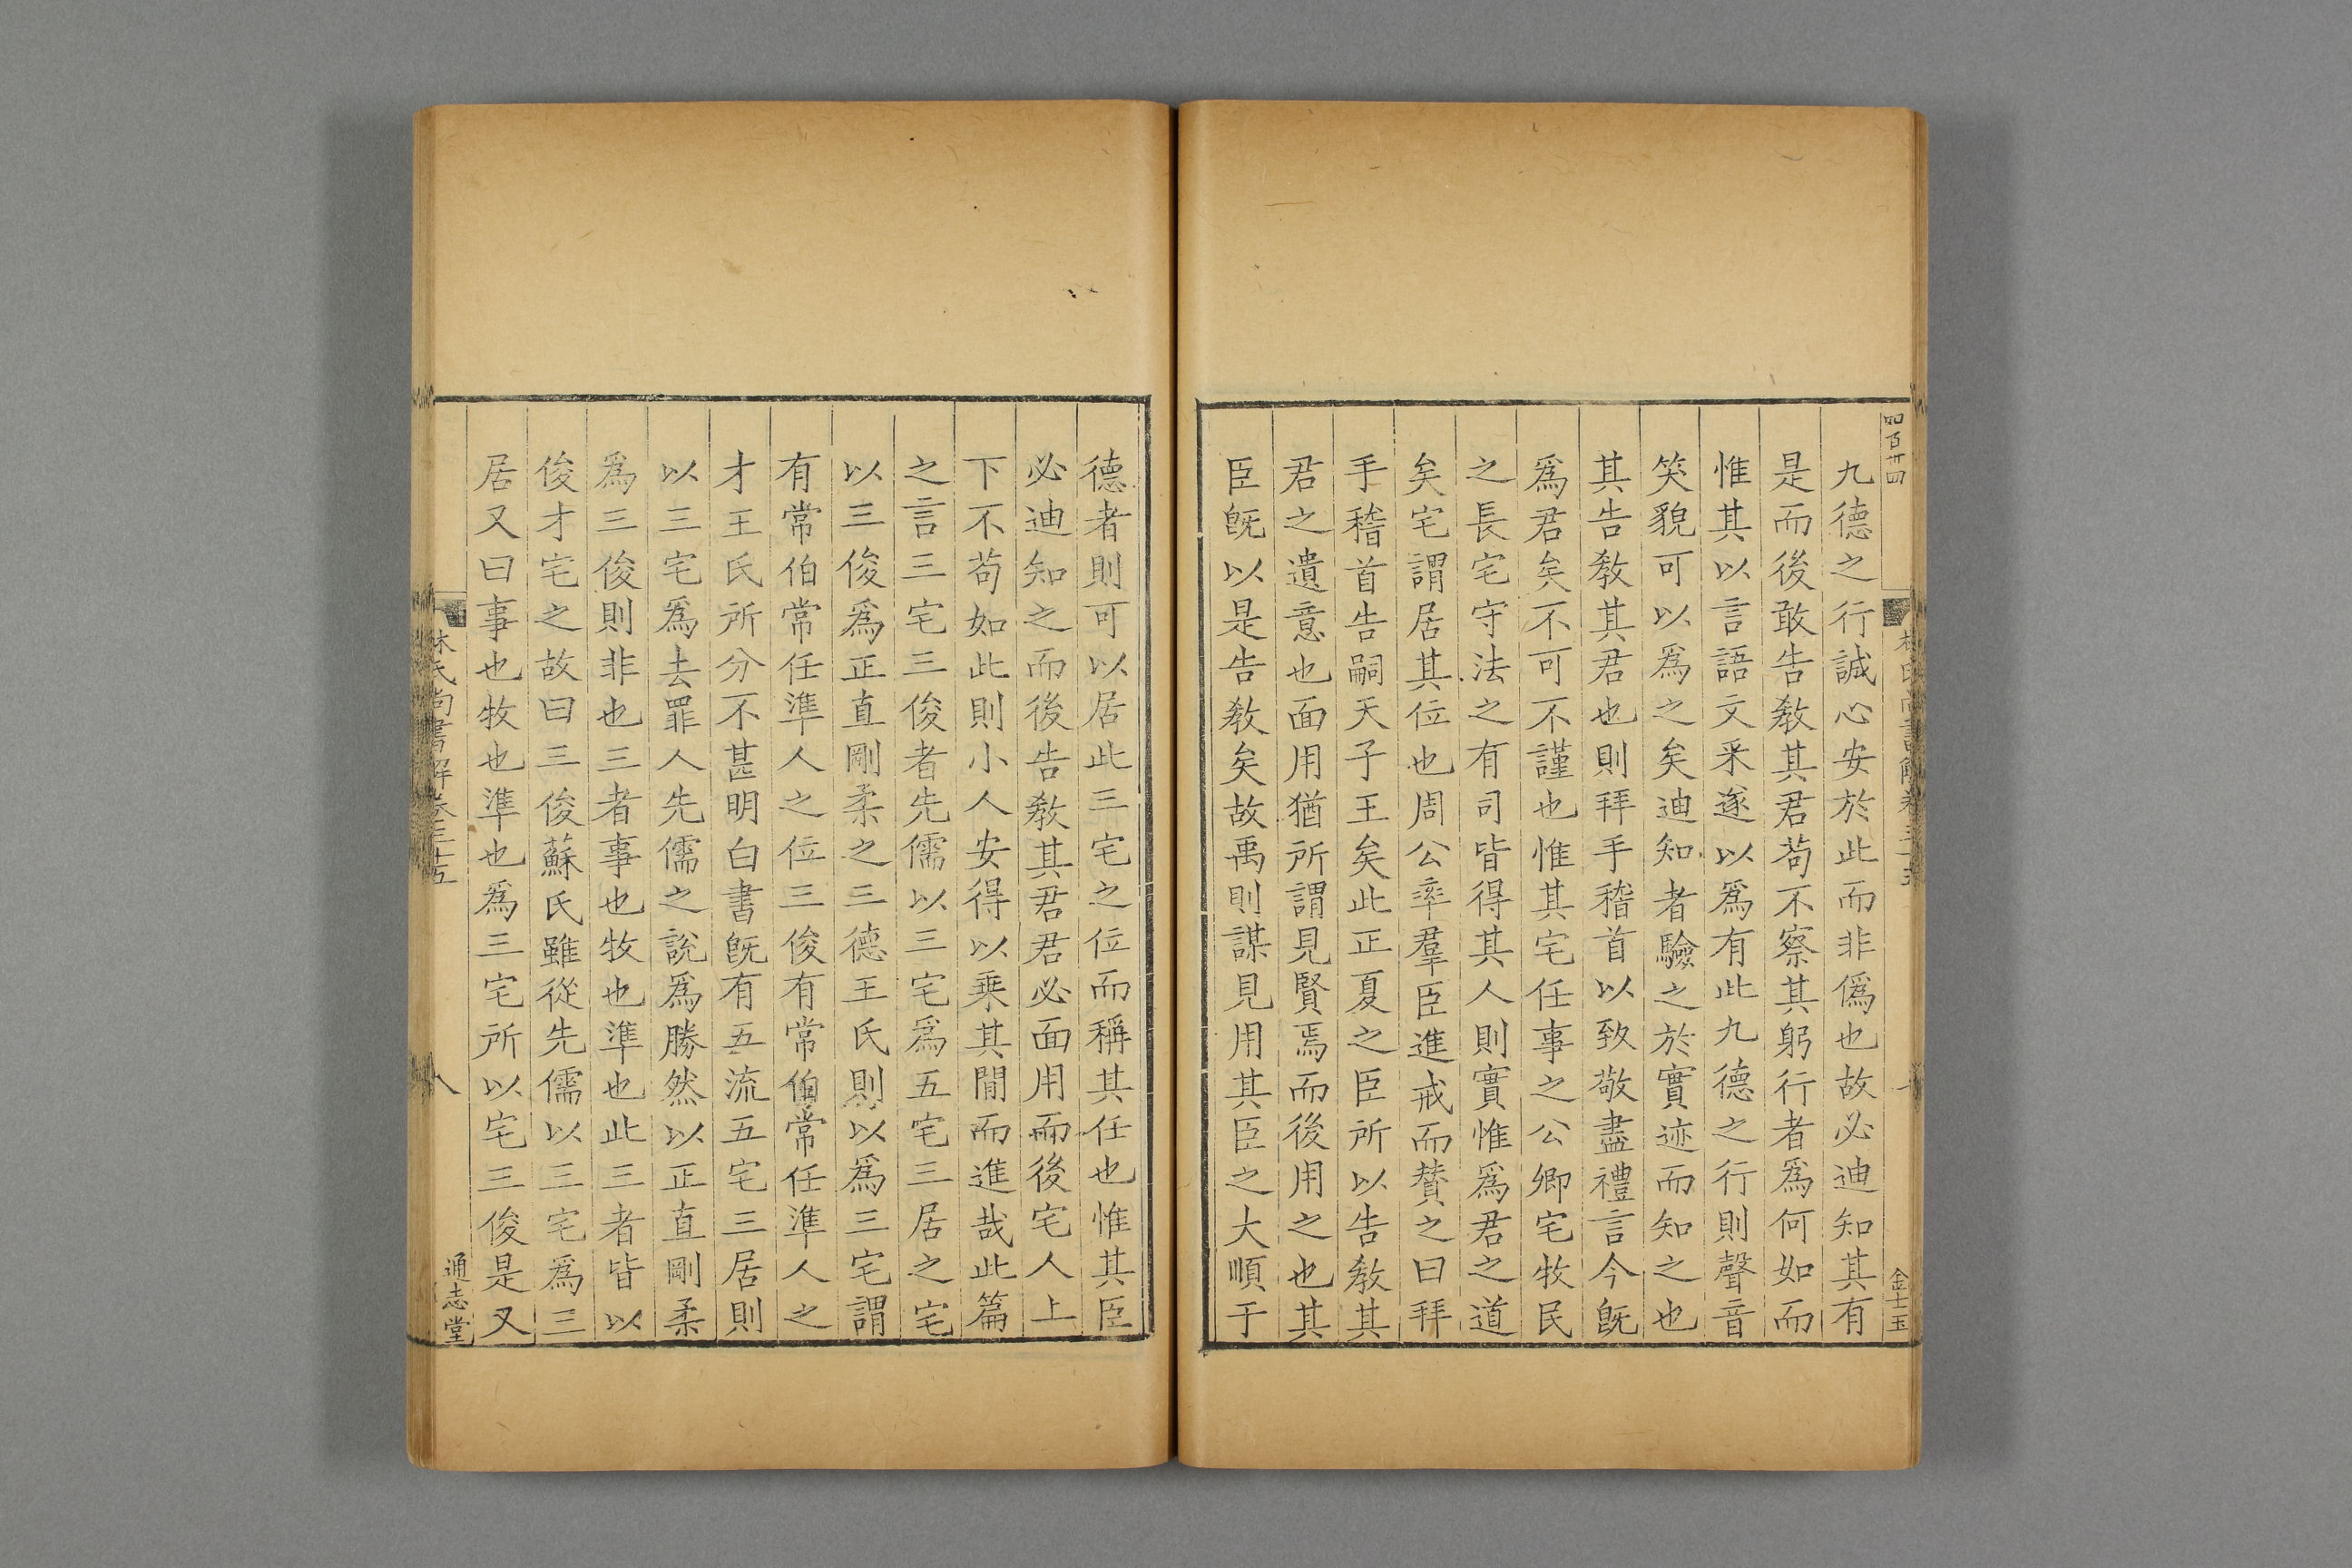 四百廿四
九德之行誠心安於此而非僞也故必迪知其有
是而後敢告敎其君苟不察其躬行者爲何如而
惟其以言語文采遂以爲有此九德之行則聲音
笑貌可以爲之矣迪知者驗之於實迹而知之也
其告敎其君也則拜手稽首以致敬盡禮言今旣
爲君矣不可不謹也惟其宅任事之公卿宅牧民
之長宅守法之有司皆得其人則實惟爲君之道
矣宅謂居其位也周公率羣臣進戒而贊之曰拜
手稽首告嗣天子王矣此正夏之臣所以告敎其
君之遺意也面用猶所謂見賢焉而後用之也其
臣旣以是告敎矣故禹則謀見用其臣之大順于
金士玉
德者則可以居此三宅之位而稱其任也惟其臣
必迪知之而後告敎其君君必面用而後宅人上
下不苟如此則小人安得以乘其間而進哉此篇
之言三宅三俊者先儒以三宅爲五宅三居之宅
以三俊爲正直剛柔之三德王氏則以爲三宅謂
有常伯常任準人之位三俊有常伯常任準人之
才王氏所分不甚明白書旣有五流五宅三居則
以三宅爲去罪人先儒之說爲勝然以正直剛柔
爲三俊則非也三者事也牧也準也此三者皆以
俊才宅之故曰三俊蘇氏雖從先儒以三宅爲三
居又曰事也牧也準也爲三宅所以宅三俊是又
林氏尚書解卷三十五
八
通志堂